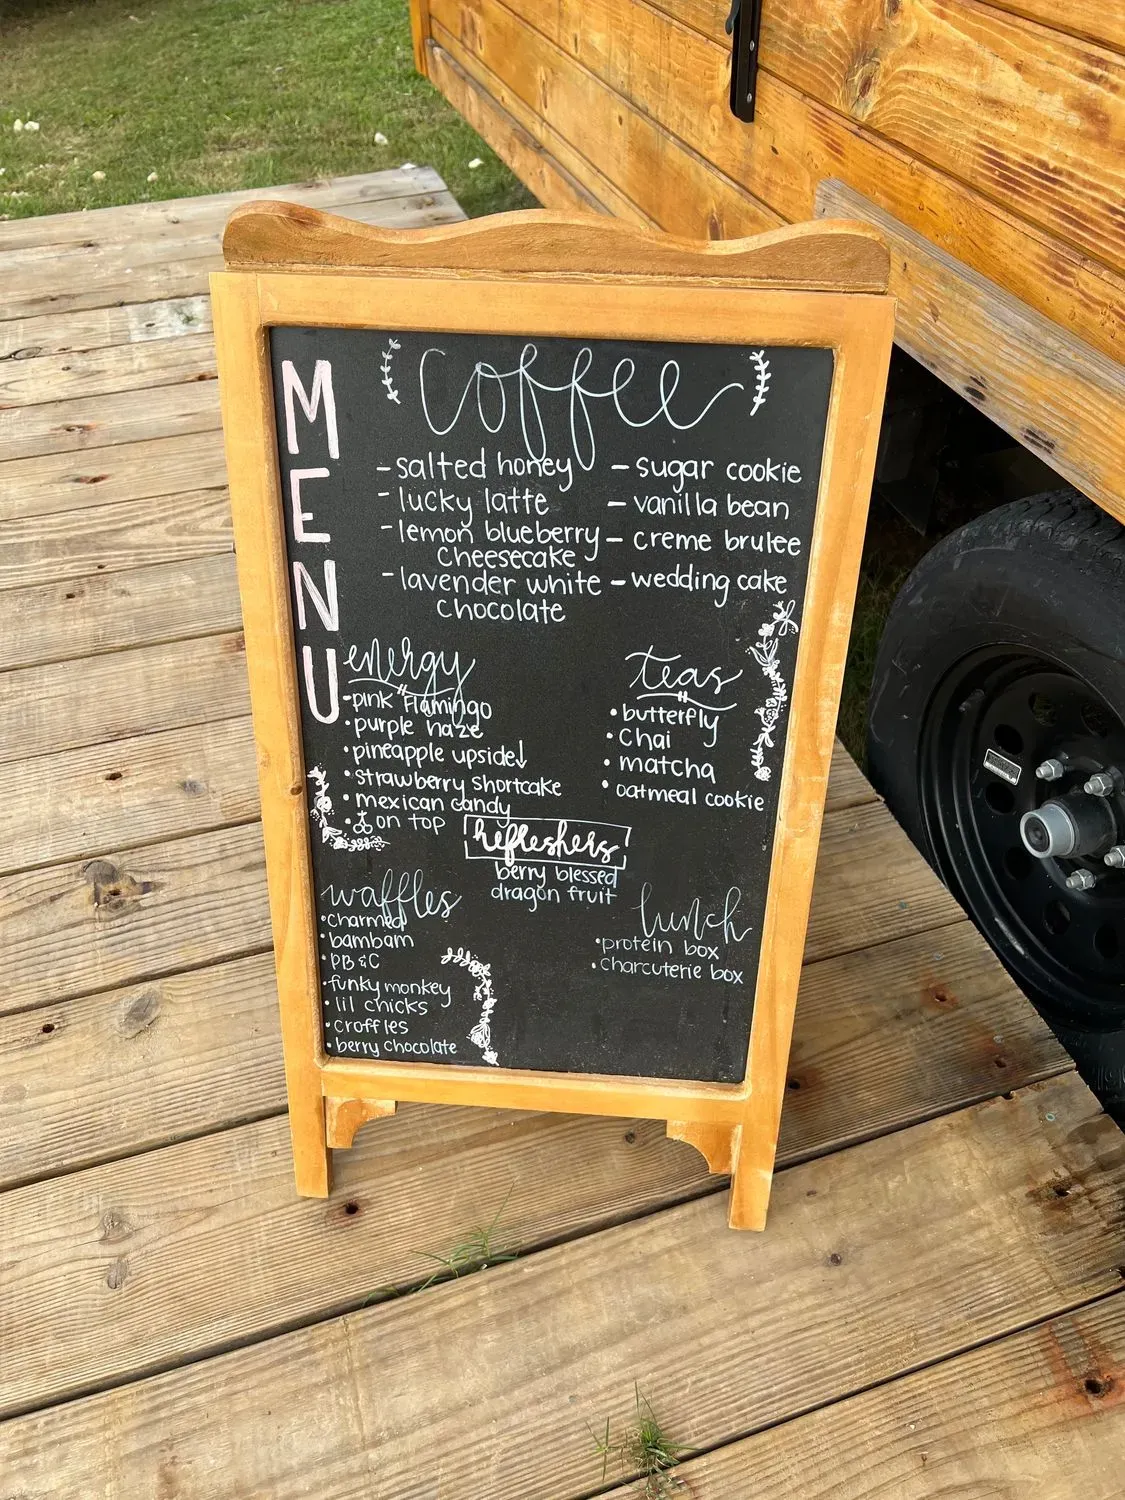 MENU
coffee
- salted honey
- lucky latte
- lemon blueberry
cheesecake
- lavender white
chocolate
- sugar cookie
- vanilla bean
- creme brulee
- wedding cake
energy
- pink flamingo
• purple haze
• pineapple upside↓
• strawberry shortcake
• mexican candy
• 🍒 on top
teas
• butterfly
• chai
• matcha
• oatmeal cookie
refreshers
berry blessed
dragon fruit
waffles
• charmed
• bambam
• PB&C
• funky monkey
• lil chicks
• croffles
• berry chocolate
lunch
• protein box
• charcuterie box